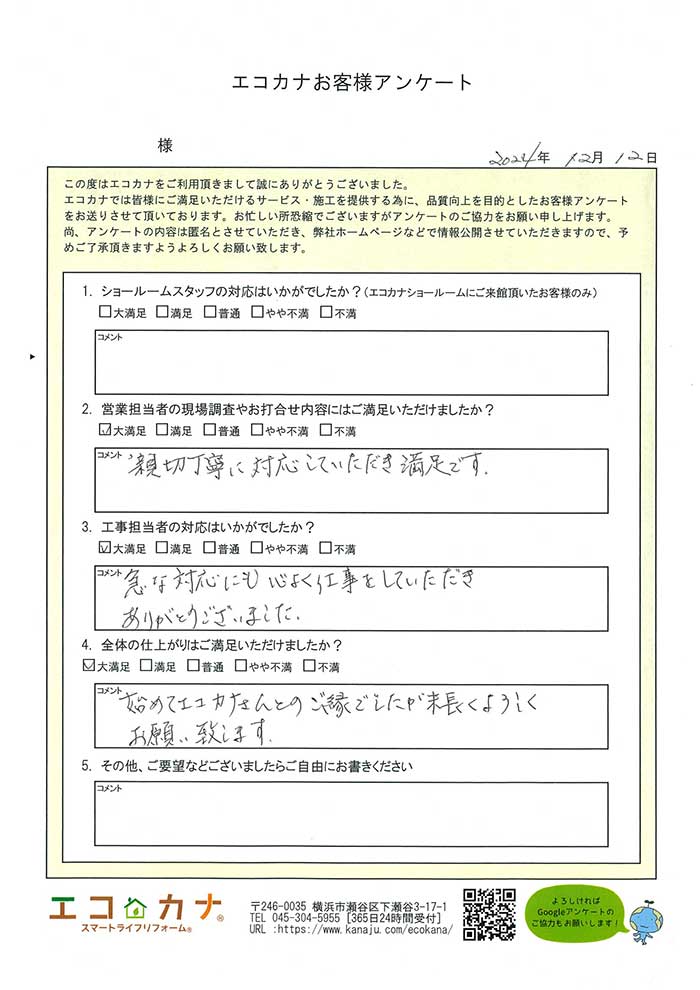 エコカナお客様アンケート
様
2024年 12月 12日
この度はエコカナをご利用頂きまして誠にありがとうございました。
エコカナでは皆様にご満足いただけるサービス・施工を提供する為に、品質向上を目的としたお客様アンケート
をお送りさせて頂いております。お忙しい所恐縮でございますがアンケートのご協力をお願い申し上げます。
尚、アンケートの内容は匿名とさせていただき、弊社ホームページなどで情報公開させていただきますので、予
めご了承頂きますようよろしくお願い致します。
1. ショールームスタッフの対応はいかがでしたか?(エコカナショールームにご来館頂いたお客様のみ)
□大満足 □満足 □普通 □やや不満 □不満
コメント
2. 営業担当者の現場調査やお打合せ内容にはご満足いただけましたか?
☑大満足 □満足 □普通 □やや不満 □不満
コメント
親切丁寧に対応していただき満足です.
3. 工事担当者の対応はいかがでしたか?
☑大満足 □満足 □普通 □やや不満 □不満
コメント
急な対応にも心よく仕事をしていただき
ありがとうございました.
4. 全体の仕上がりはご満足いただけましたか?
☑大満足 □満足 □普通 □やや不満 □不満
コメント
始めてエコカナさんとのご縁でしたが末長くよろしく
お願い致します.
5. その他、ご要望などございましたらご自由にお書きください
コメント
エコカナ®
スマートライフリフォーム®
〒246-0035 横浜市瀬谷区下瀬谷3-17-1
TEL 045-304-5955 [365日24時間受付]
URL :https://www.kanaju.com/ecokana/
よろしければ
Googleアンケートの
ご協力もお願いします!